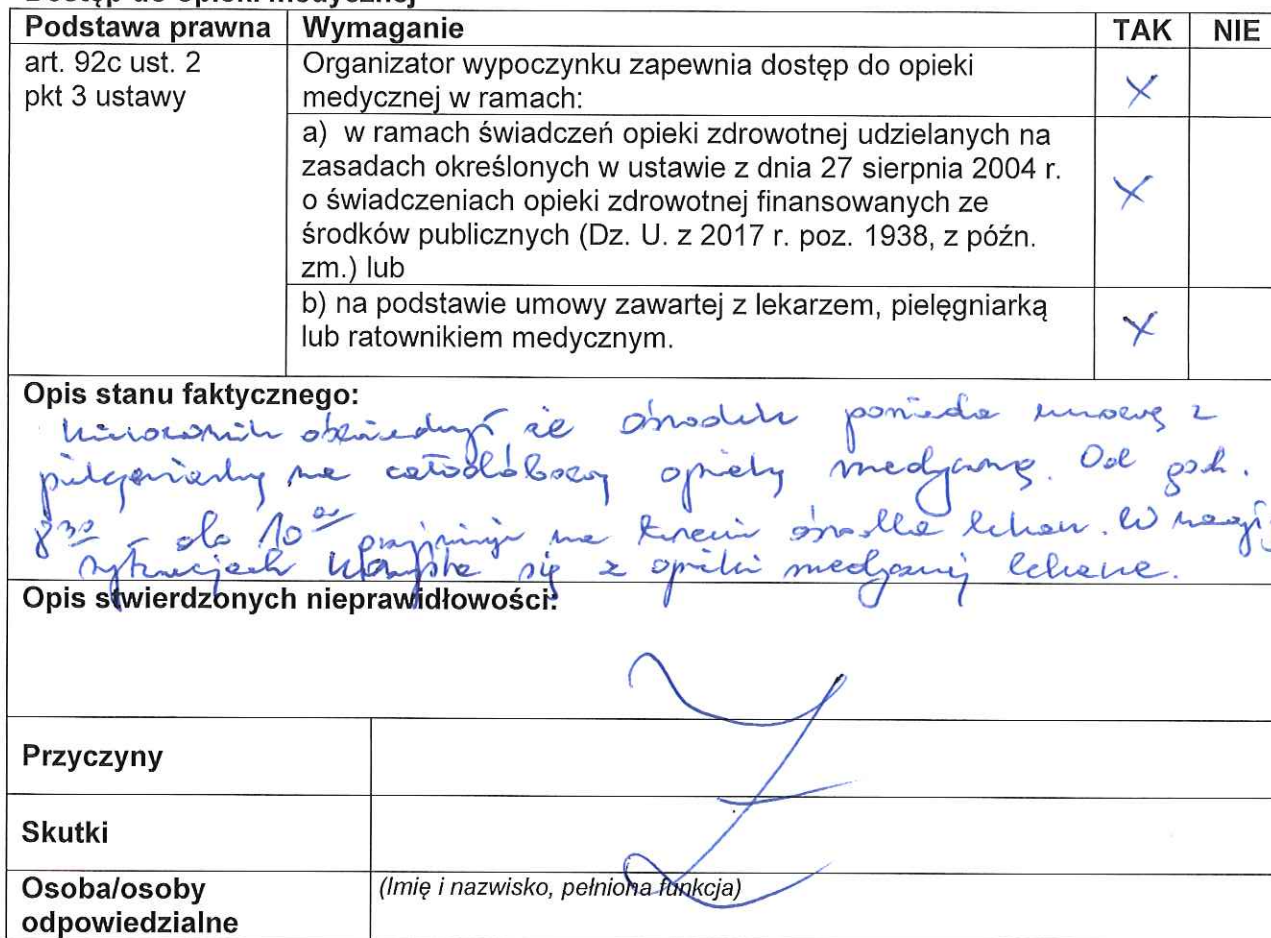 Dostęp do opieki medycznej
Podstawa prawna Wymaganie TAK NIE
art. 92c ust. 2
pkt 3 ustawy
Organizator wypoczynku zapewnia dostęp do opieki
medycznej w ramach: X
a) w ramach świadczeń opieki zdrowotnej udzielanych na
zasadach określonych w ustawie z dnia 27 sierpnia 2004 r.
o świadczeniach opieki zdrowotnej finansowanych ze X
środków publicznych (Dz. U. z 2017 r. poz. 1938, z późn.
zm.) lub
b) na podstawie umowy zawartej z lekarzem, pielęgniarką
lub ratownikiem medycznym. X
Opis stanu faktycznego:
Kierownik że ośrodek posiada umowę z
pielęgniarką na całodobową opiekę medyczną. Od godz.
8³⁰ – do 10⁰⁰ przyjmuje na terenie ośrodka lekarz. W
sytuacjach korzysta się z opieki medycznej
Opis stwierdzonych nieprawidłowości:
Przyczyny
Skutki
Osoba/osoby
odpowiedzialne
(Imię i nazwisko, pełniona funkcja)